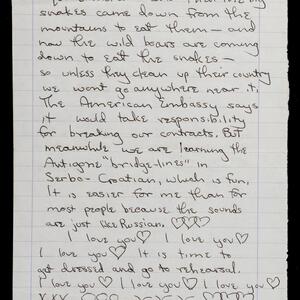 snakes came down from the
mountains to eat them — and
now the wild boars are coming
down to eat the snakes —
so unless they clean up their country
we won't go anywhere near it.
The American Embassy says
it would take responsibility
for breaking our contracts. But
meanwhile we are learning the
Antigone "bridge-lines" in
Serbo-Croatian, which is fun.
It is easier for me than for
most people because the sounds
are just like Russian. ♡♡♡
I love you♡ I love you♡
I love you♡ It is time to
get dressed and go to rehearsal.
I love you♡ I love you♡ I love you♡